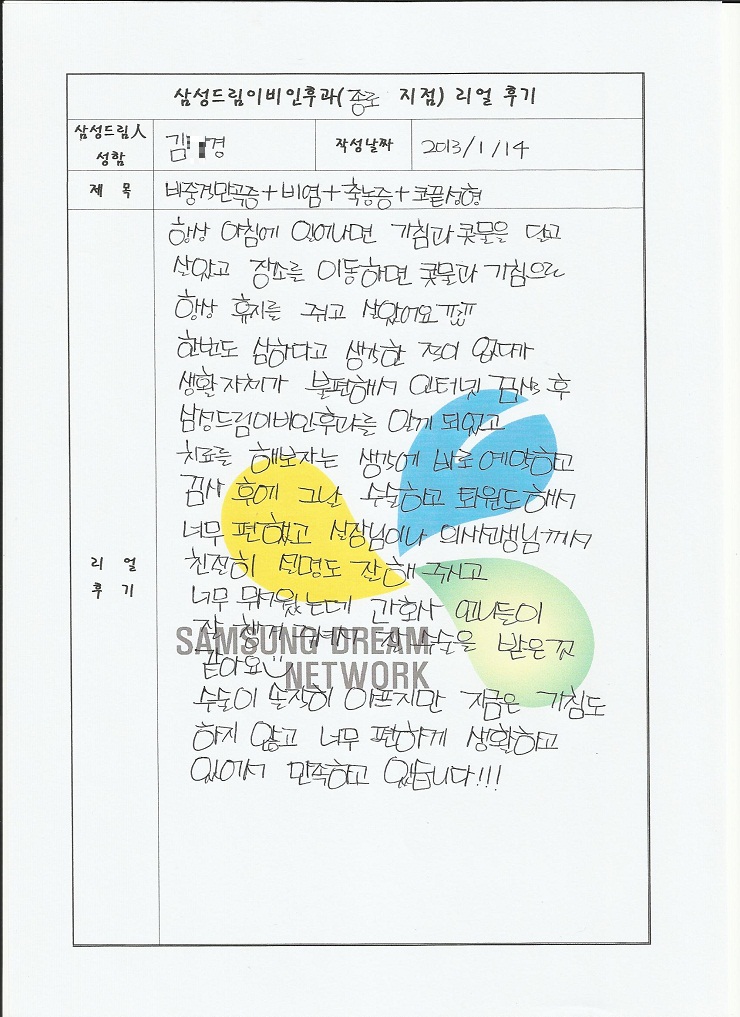 삼성드림이비인후과(종로 지점) 리얼 후기
삼성드림人 성함 김 경 작성날짜 2013/1/14
제 목 비중격만곡증+비염+축농증+코끝성형
리 얼 후 기
항상 아침에 일어나면 기침과 콧물을 달고
살았고 장소를 이동하면 콧물과 기침으로
항상 휴지를 쥐고 살았어요ㅠㅠ
한번도 심하다고 생각한 적이 없다가
생활 자체가 불편해서 인터넷 검색 후
삼성드림이비인후과를 알게 되었고
치료를 해보자는 생각에 바로 예약하고
검사 후에 그날 수술하고 퇴원도 해서
너무 편했고 실장님이나 의사선생님께서
친절히 설명도 잘 해 주시고
너무 무서웠는데 간호사 언니들이
잘 챙겨 주셔서 잘 수술을 받은것
같아요
수술이 솔직히 아프지만 지금은 기침도
하지 않고 너무 편하게 생활하고
있어서 만족하고 있습니다!!!
SAMSUNG DREAM
NETWORK